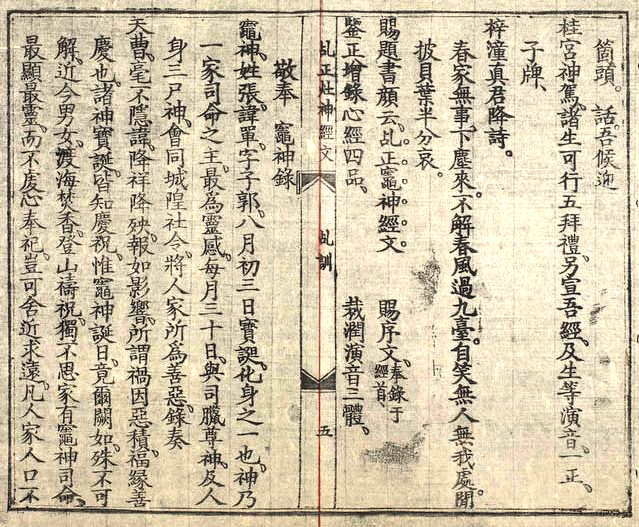 箇頭。話。吾候迎
桂宮神駕。諸生可行五拜禮。另宣吾經。及生等演音。一正。
子牌。
梓潼真君降詩。
春家無事下塵來。不解春風過九臺。自笑無人無我處。聞
披貝葉半分哀。
賜題書顏云。乩正竈神經文。 賜序文。奉錄于經首。
鑒正增錄心經四品。 裁潤演音三體。
乩正灶神經文 乩訓 五
敬奉 竈神錄
竈神。姓張。諱單。字子郭。八月初三日寶誕。化身之一也。神乃
一家司命之王。最為靈感。每月三十日。與司臘尊神。及人
身三尸神。會同城隍社令。將人家所為善惡。錄奏
天曹。毫不隱諱。降祥降殃。報如影響。所謂禍因惡積。福緣善
慶也。諸神寶誕。皆知慶祝。惟竈神誕日。竟爾闕如。殊不可
解。近今男女。渡海焚香。登山禱祝。獨不思家有竈神司命。
最顯最靈。而不虔心奉祀。豈可舍近求遠。凡人家人口不